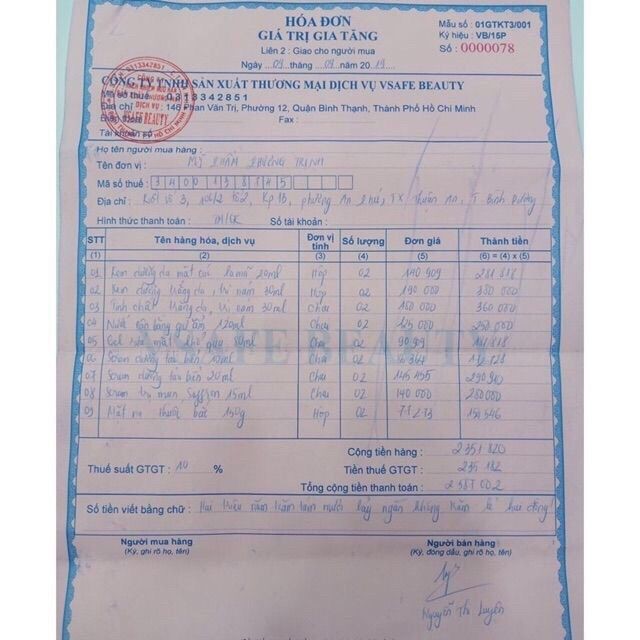 HÓA ĐƠN
GIÁ TRỊ GIA TĂNG
Liên 2 : Giao cho người mua
Ngày 09 tháng 09 năm 2019
Mẫu số : 01GTKT3/001
Ký hiệu : VB/15P
Số : 0000078
CÔNG TY TNHH SẢN XUẤT THƯƠNG MẠI DỊCH VỤ VSAFE BEAUTY
Mã số thuế : 0313342851
Địa chỉ : 146 Phan Văn Trị, Phường 12, Quận Bình Thạnh, Thành Phố Hồ Chí Minh
Điện thoại : Fax :
Tài khoản số :
Họ tên người mua hàng :
Tên đơn vị : Mỹ Phẩm Phương Trinh
Mã số thuế :
Địa chỉ : 3, tổ 2, Kp 1B, phường An Phú, TX Thuận An, T Bình Dương
Hình thức thanh toán : TM/CK Số tài khoản :
STT Tên hàng hóa, dịch vụ Đơn vị tính Số lượng Đơn giá Thành tiền
(1) (2) (3) (4) (5) (6) = (4) x (5)
01 Kem dưỡng da mặt 20ml Hộp 02 140 909 281 818
02 Kem dưỡng trắng da, trị nám 30ml Hộp 02 190 000 380 000
03 Tinh chất trắng da, trị nám 30ml Chai 02 180 000 360 000
04 Nước cân bằng 120ml Chai 02 125 000 250 000
05 Gel rửa mặt Chai 02
06 Serum dưỡng 10ml Chai 02
07 Serum dưỡng 20ml Chai 02 145 455 290 910
08 Serum trị mụn Saffron 15ml Chai 02 140 000 280 000
09 Mặt nạ thuốc bắc 150g Hộp 02 77 273 154 546
VSAFE BEAUTY
Cộng tiền hàng : 2 351 820
Thuế suất GTGT : 10 % Tiền thuế GTGT : 235 182
Tổng cộng tiền thanh toán : 2 587 002
Số tiền viết bằng chữ : Hai triệu năm trăm tám mươi bảy ngàn không trăm lẻ hai đồng
Người mua hàng Người bán hàng
(Ký, ghi rõ họ, tên) (Ký, đóng dấu, ghi rõ họ, tên)
Nguyễn Thị Luyên